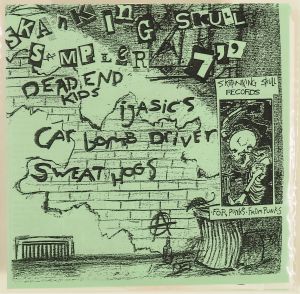 SKANKING SKULL
SAMPLER 7"
DEAD END
KIDS
IJASICS
CAR BOMB DRIVER
SWEAT HOGS
SKANKING SKULL
RECORDS
FOR PUNKS · FROM PUNKS